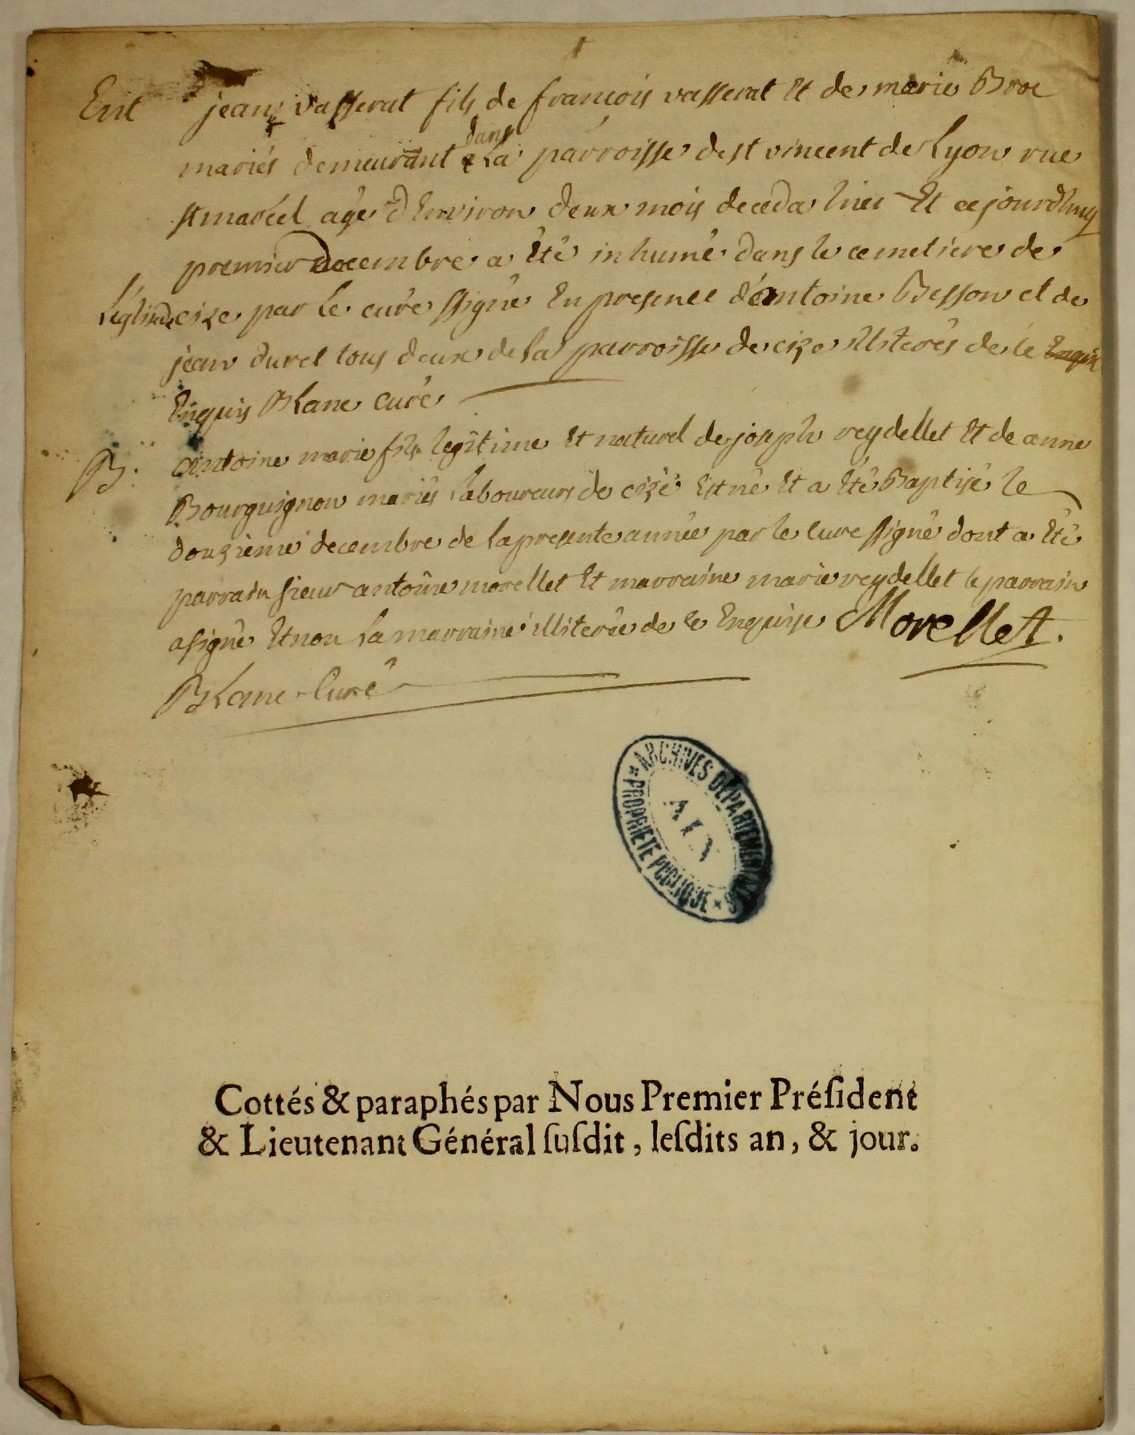 Ent jean vasserat fils de francois vasserat Et de marie Broc
mariés demeurant dans La parroisse de st vincent de Lyon rue
st marcel agé d'Environ deux mois deceda hier Et ce jourdhuy
premier Decembre a Eté inhumé dans le cemetiere de
L'église de cize par Le curé ssigné En presence d'antoine Besson et de
jean durel tous deux de La parroisse de cize illiterés de ce Enquis
Enquis Blanc curé
B. antoine marie fils legitime Et naturel de joseph reydellet Et de anne
Bourguignon mariés Laboureurs de cizé Est né Et a Eté Baptisé le
douzieme decembre de La presente année par le cure ssigné dont a Eté
parrain sieur antoine morellet Et marraine marie reydellet le parrain
a signé Et non La marraine illiterée de ce Enquise Morellet.
Blanc Curé
ARCHIVES DEPARTEMENTALES
AIN
* PROPRIETE PUBLIQUE *
Cottés & paraphés par Nous Premier Préſident
& Lieutenant Général ſuſdit, leſdits an, & jour.